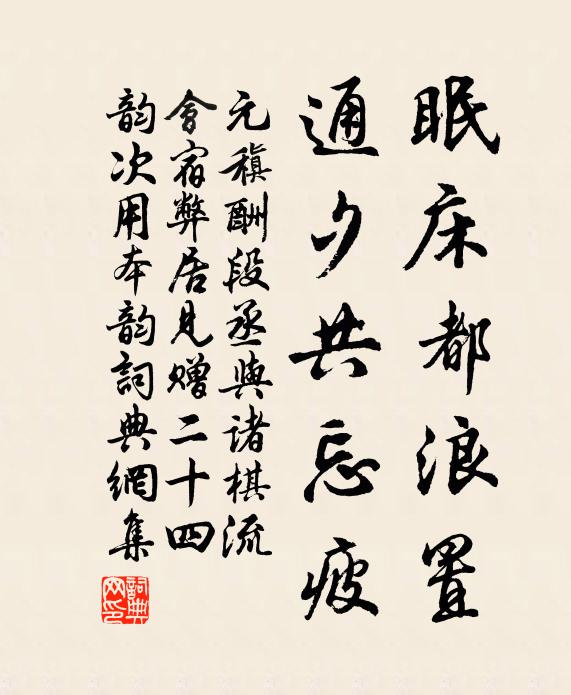 眠床都浪置
通夕共忘疲
元稹酬段丞與诸棋流
會宿弊居見赠二十四
韵次用本韵詞典網集
詞典網印